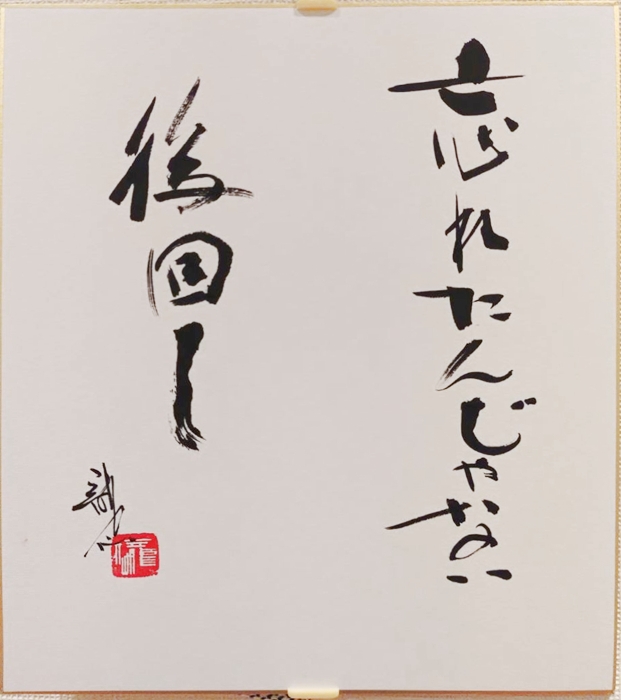 忘れたんじゃない
後回し